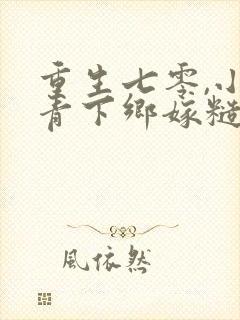 重生七零,小
青下鄉嫁糙
風依然